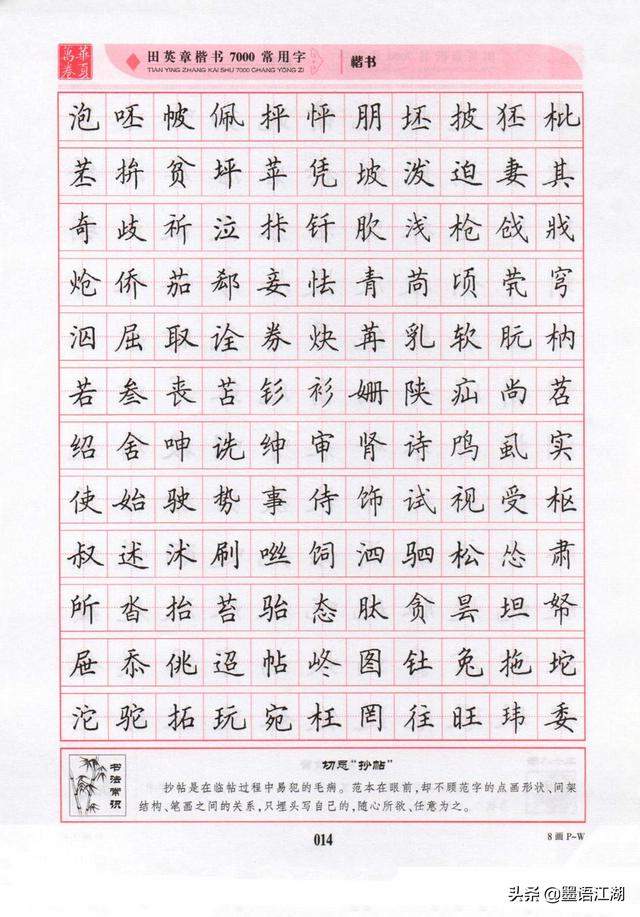 華夏萬卷
田英章楷书7000常用字
TIAN YING ZHANG KAI SHU 7000 CHANG YONG ZI
楷书
泡呸帔佩抨怦朋坯披狉枇
苤拚贫坪苹凭坡泼迫妻其
奇歧祈泣拤钎肷浅枪戗戕
炝侨茄郄妾怯青苘顷茕穹
泅屈取诠券炔苒乳软朊枘
若叁丧苫钐衫姗陕疝尚苕
绍舍呻诜绅审肾诗鸤虱实
使始驶势事侍饰试视受枢
叔述沭刷咝饲泗驷松怂肃
所沓抬苔骀态肽贪昙坦帑
屉忝佻迢帖峂图钍兔拖坨
沱驼拓玩宛枉罔往旺玮委
书法常识
切忌“抄帖”
抄帖是在临帖过程中易犯的毛病。范本在眼前,却不顾范字的点画形状、间架
结构、笔画之间的关系,只埋头写自己的,随心所欲、任意为之。
014
8画 P~W
头条 @墨语江湖